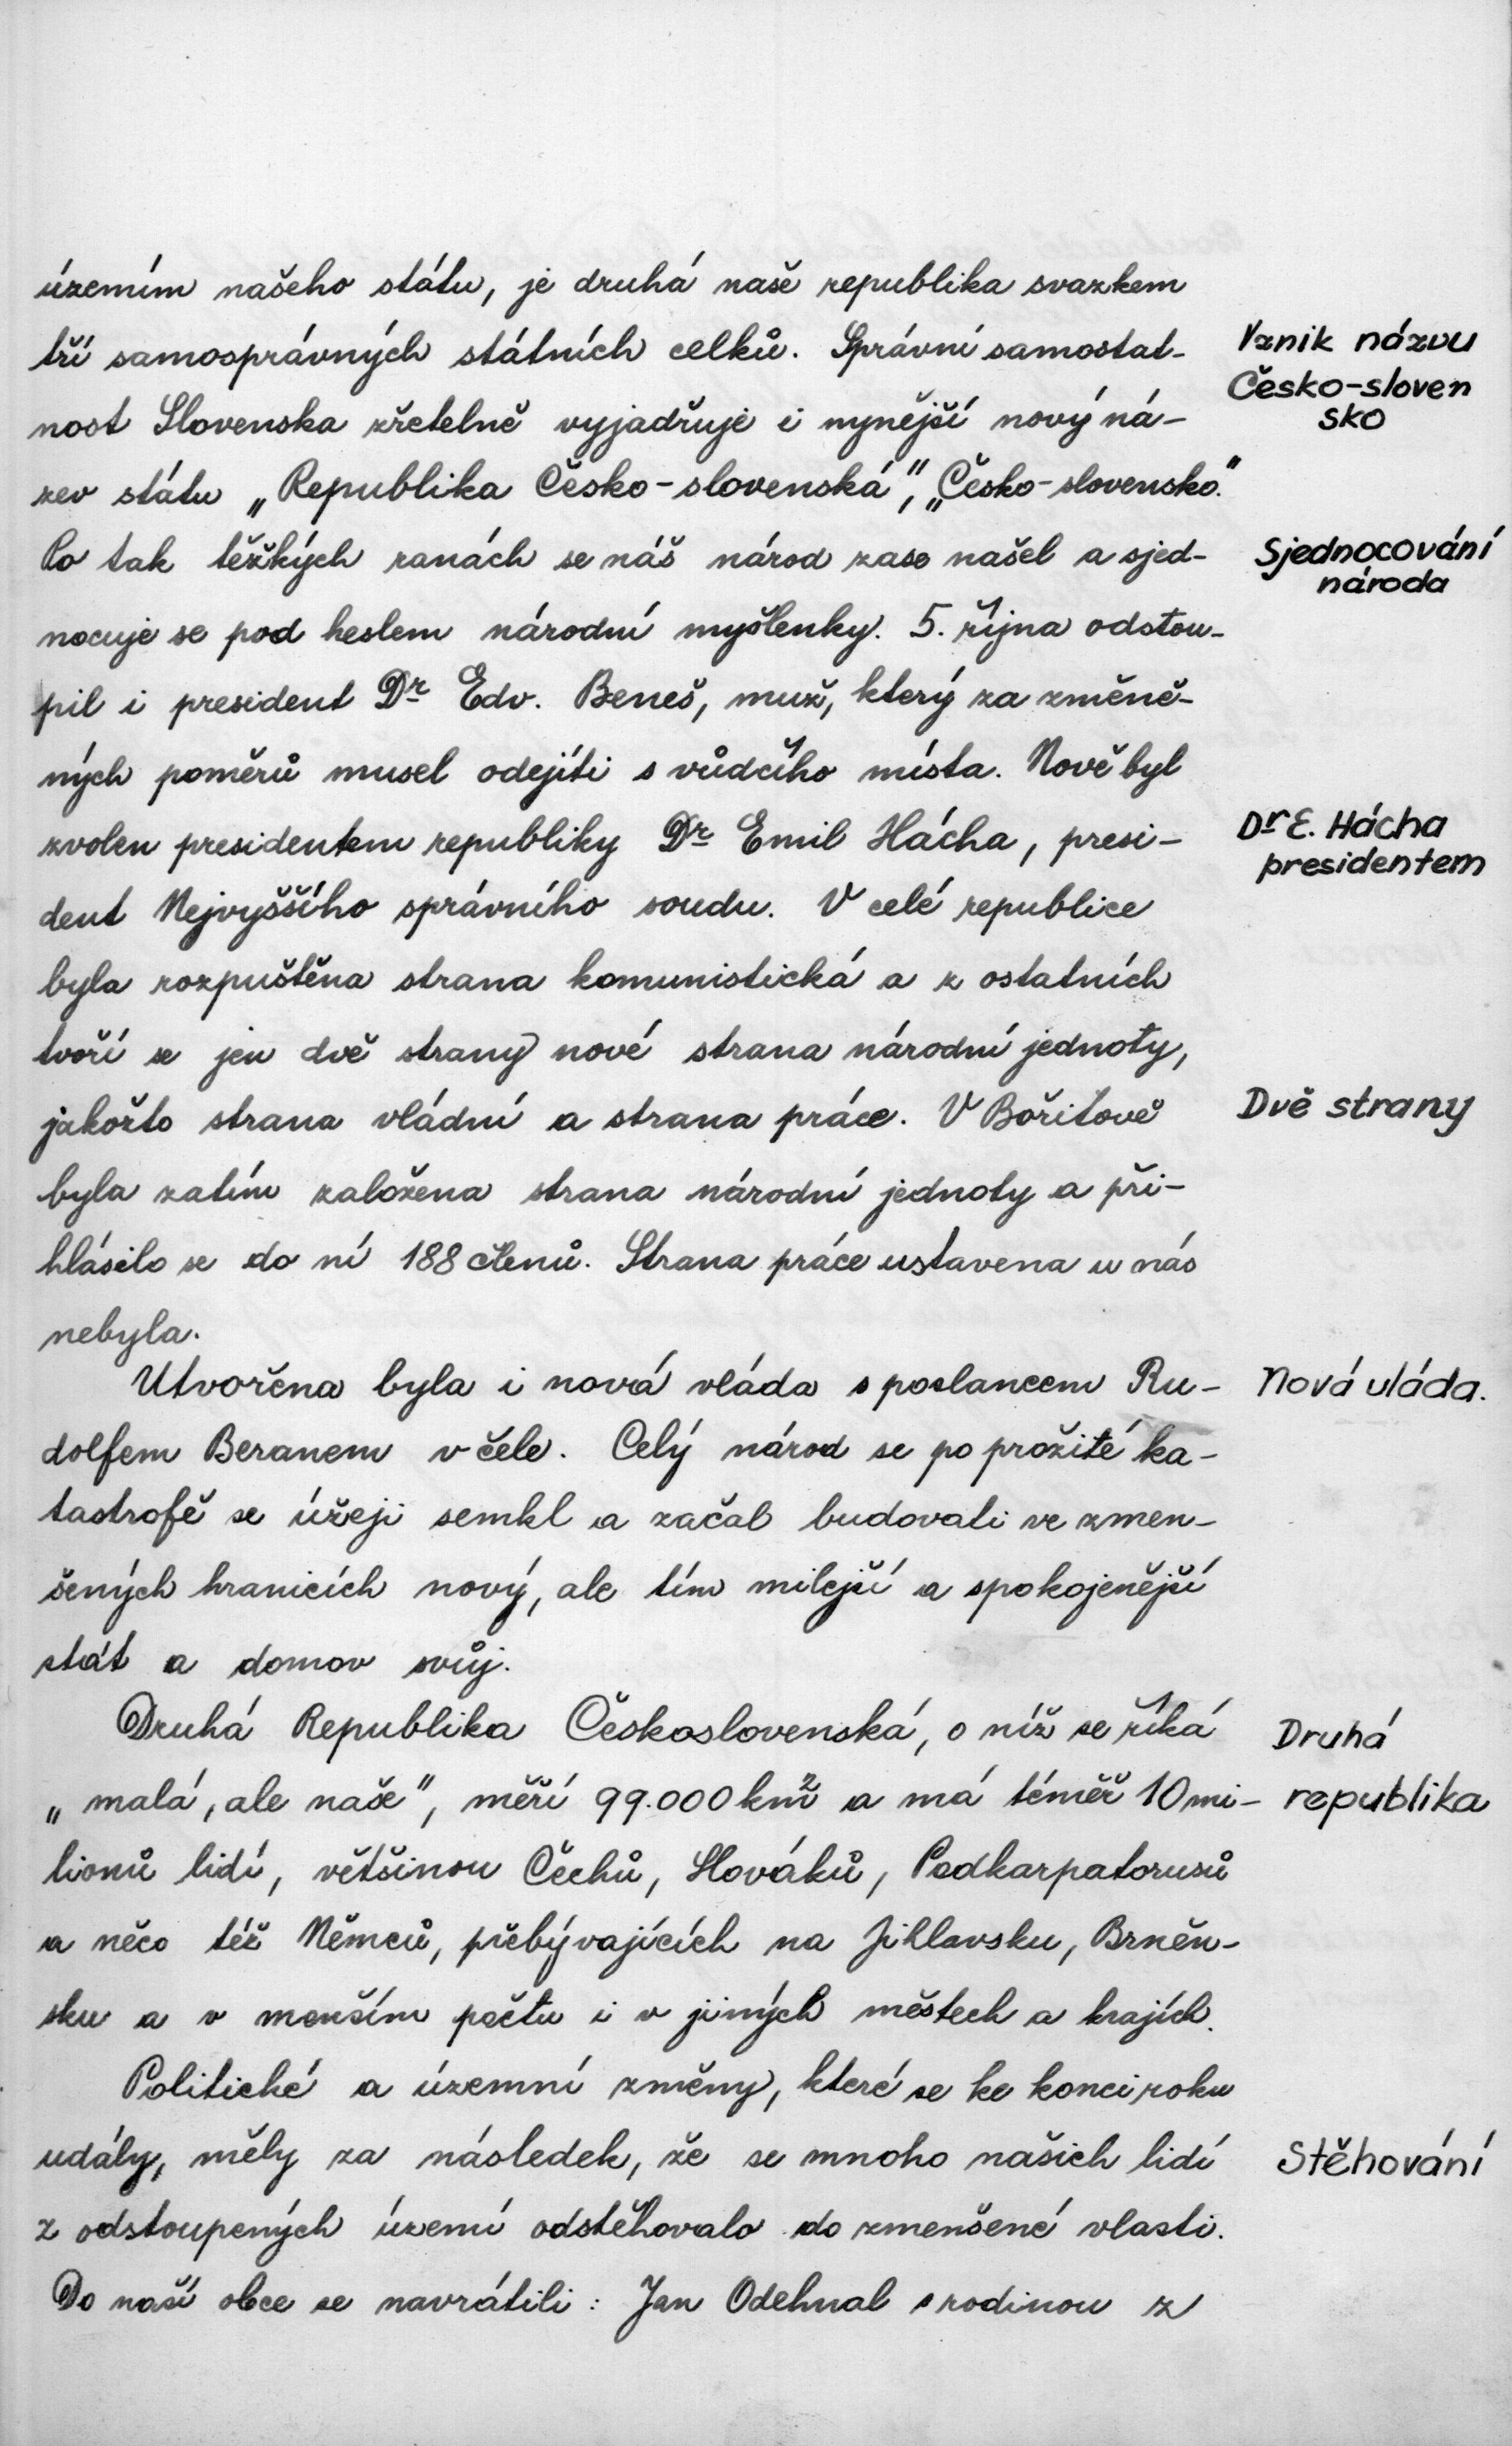 územím našeho státu, je druhá naše republika svazkem
tří samosprávných státních celků. Správní samostat-
Vznik názvu
Česko-sloven
sko
nost Slovenska zřetelně vyjadřuje i nynější nový ná-
zev státu „Republika Česko-slovenská", „Česko-slovensko."
Po tak těžkých ranách se náš národ zase našel a sjed-
Sjednocování
národa
nocuje se pod heslem národní myšlenky. 5. října odstou-
pil i president Dr Edv. Beneš, muž, který za změně-
ných poměrů musel odejíti s vůdčího místa. Nově byl
zvolen presidentem republiky Dr Emil Hácha, presi-
Dr E. Hácha
presidentem
dent Nejvyššího správního soudu. V celé republice
byla rozpuštěna strana komunistická a z ostatních
tvoří se jen dvě strany nové strana národní jednoty,
jakožto strana vládní a strana práce. V Bořitově
Dvě strany
byla zatím založena strana národní jednoty a při-
hlásilo se do ní 188 členů. Strana práce ustavena u nás
nebyla.
Utvořena byla i nová vláda s poslancem Ru-
Nová vláda.
dolfem Beranem v čele. Celý národ se po prožité ka-
tastrofě se úžeji semkl a začal budovati ve zmen-
šených hranicích nový, ale tím milejší a spokojenější
stát a domov svůj.
Druhá Republika Československá, o níž se říká
Druhá
republika
„malá, ale naše", měří 99.000 km² a má téměř 10 mi-
lionů lidí, většinou Čechů, Slováků, Podkarpatorusů
a něco též Němců, přebývajících na Jihlavsku, Brněn-
sku a v menším počtu i v jiných městech a krajích.
Politické a územní změny, které se ke konci roku
udály, měly za následek, že se mnoho našich lidí
Stěhování
z odstoupených území odstěhovalo do zmenšené vlasti.
Do naší obce se navrátili: Jan Odehnal s rodinou z